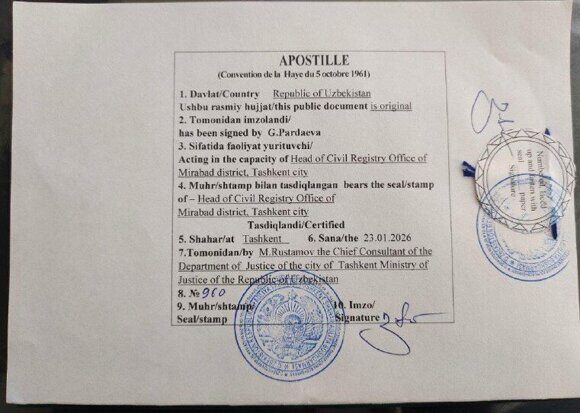 APOSTILLE
(Convention de la Haye du 5 octobre 1961)
1. Davlat/Country Republic of Uzbekistan
Ushbu rasmiy hujjat/this public document is original
2. Tomonidan imzolandi/
has been signed by G.Pardaeva
3. Sifatida faoliyat yurituvchi/
Acting in the capacity of Head of Civil Registry Office of
Mirabad district, Tashkent city
4. Muhr/shtamp bilan tasdiqlangan bears the seal/stamp
of – Head of Civil Registry Office of
Mirabad district, Tashkent city
Tasdiqlandi/Certified
5. Shahar/at Tashkent 6. Sana/the 23.01.2026
7.Tomonidan/by M.Rustamov the Chief Consultant of the
Department of Justice of the city of Tashkent Ministry of
Justice of the Republic of Uzbekistan
8. № 960
9. Muhr/shtamp/ 10. Imzo/
Seal/stamp Signature
Numbered, laced
up and with
paper
seal
Signature